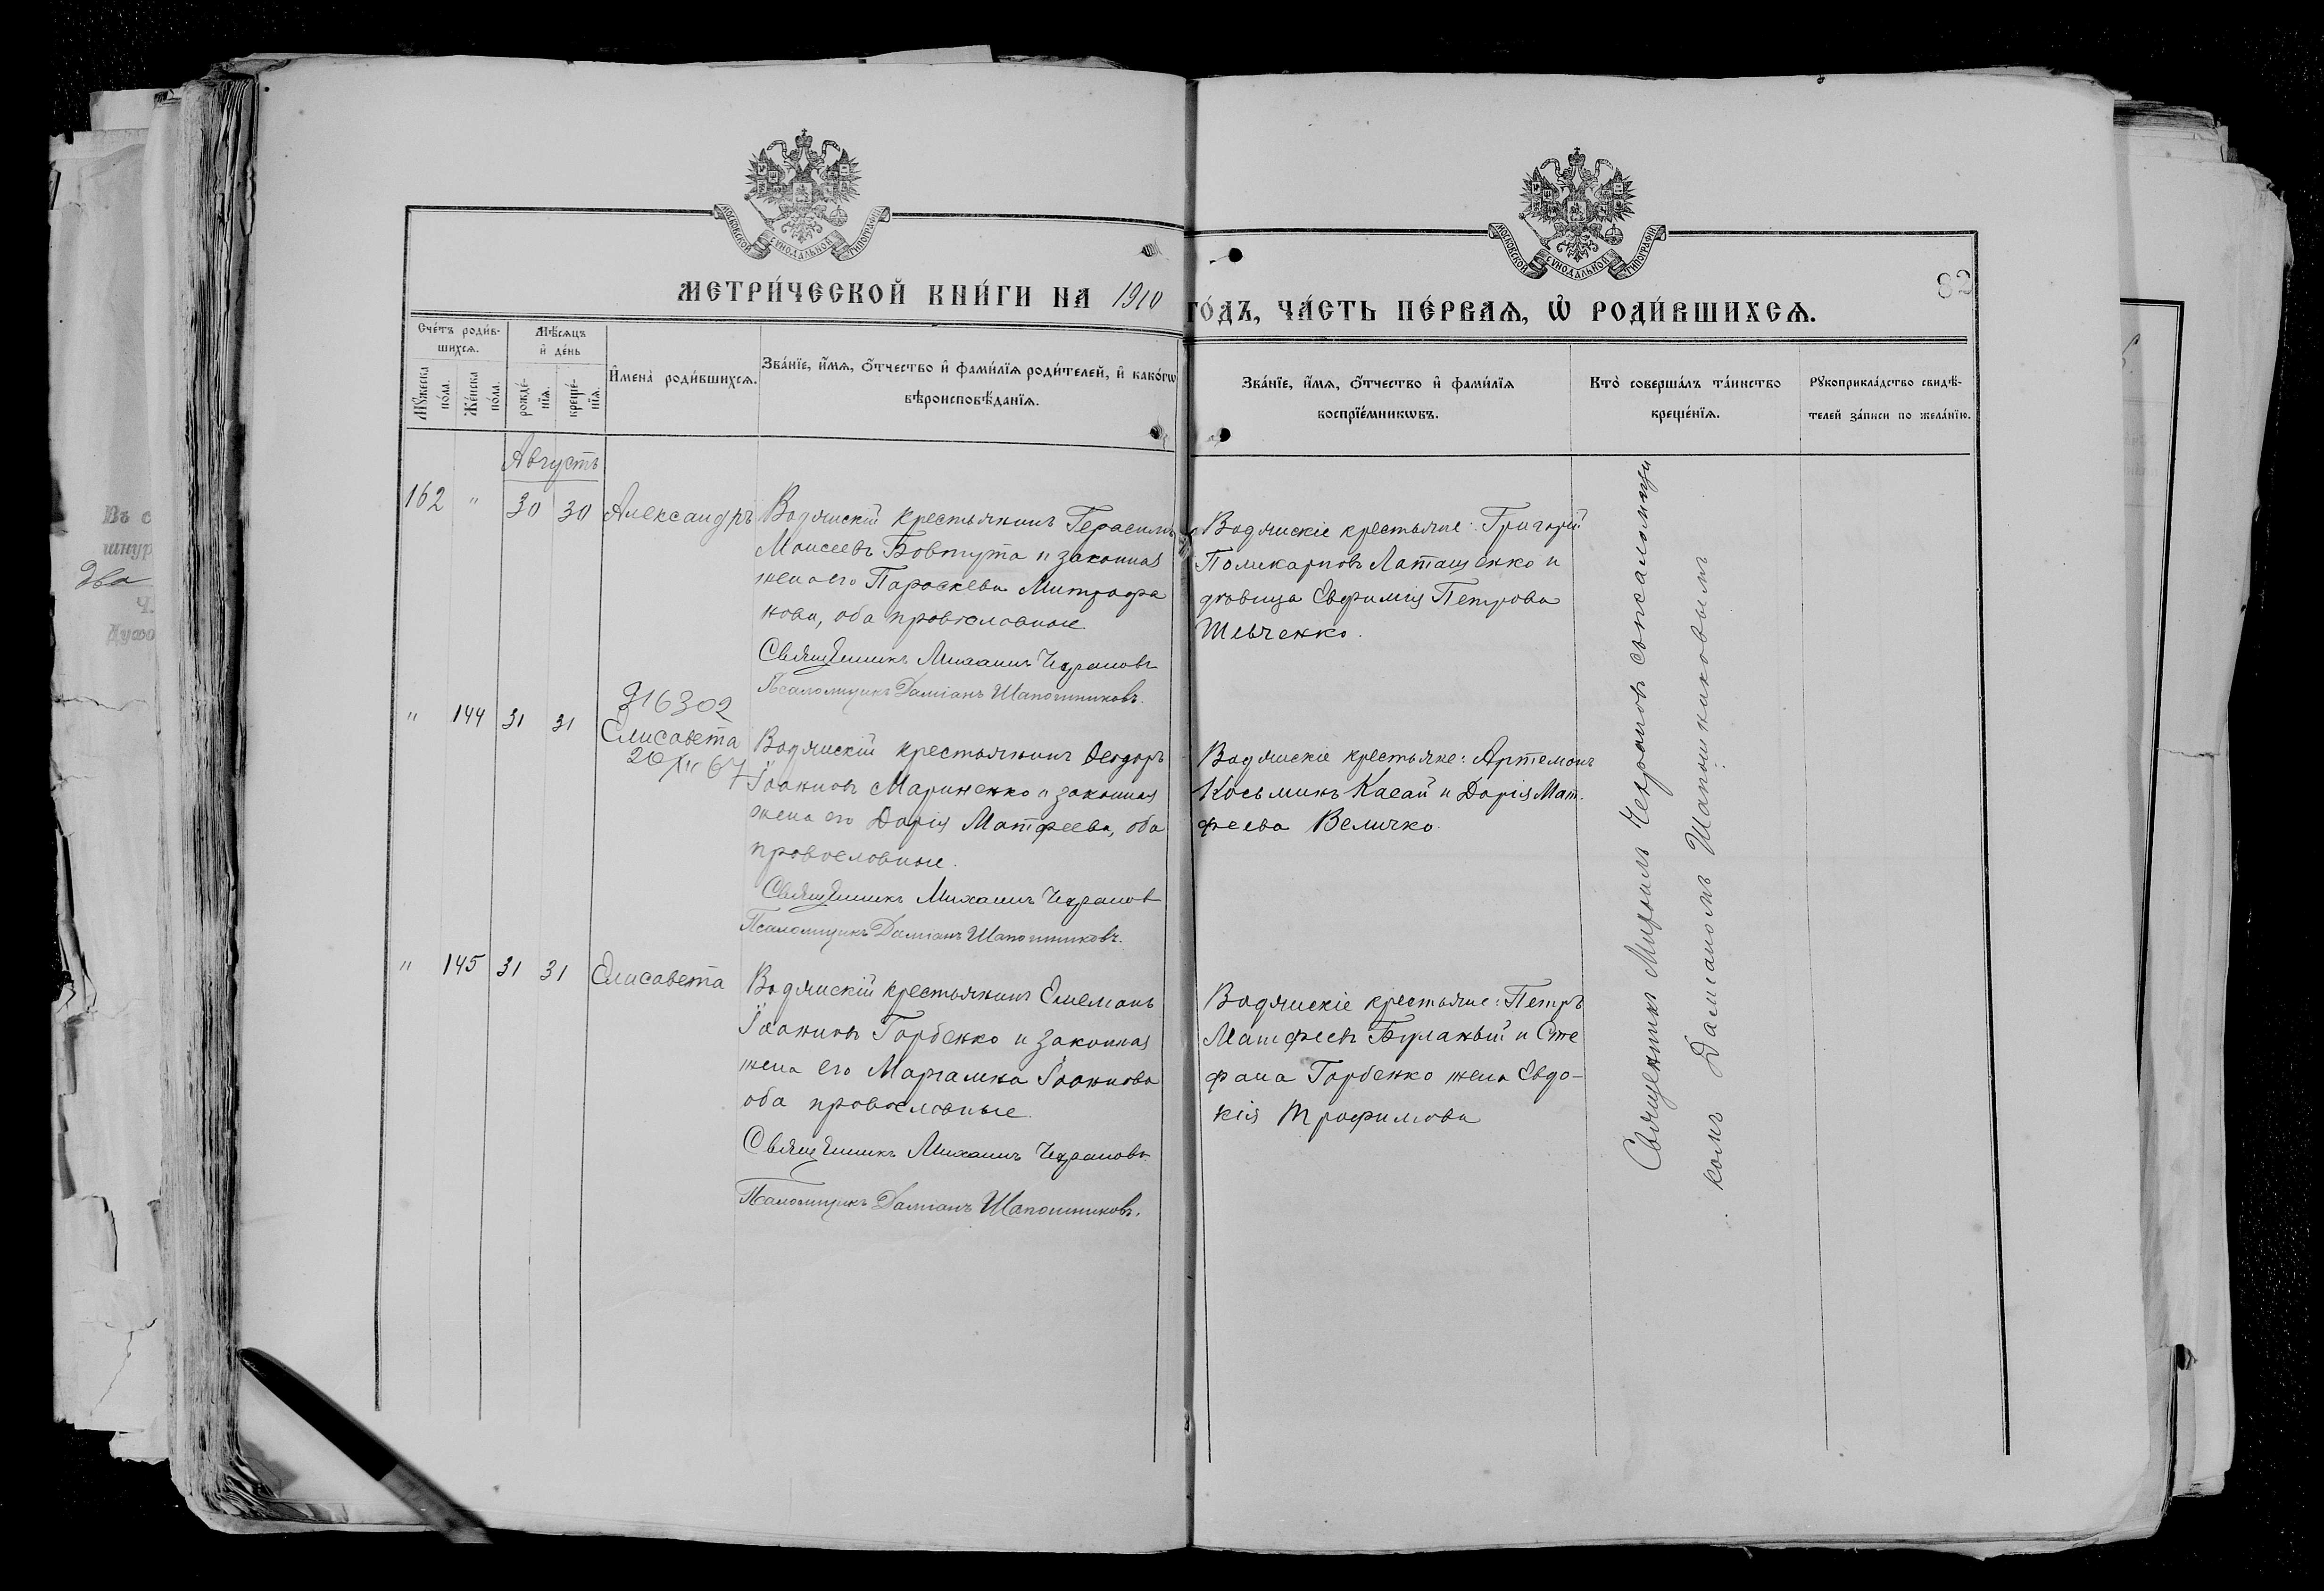 МОСКОВСКОЙ СУНОДАЛЬНОЙ ТИПОГРАФІИ
МОСКОВСКОЙ СУНОДАЛЬНОЙ ТИПОГРАФІИ
82
МЕТРИ́ЧЕСКОЙ КНИ́ГИ НА 1910
ГО́ДЪ, ЧА́СТЬ ПЕ́РВАѦ, Ѡ҆ РОДИ́ВШИХСѦ.
Сче́тъ роди́в-
шихсѧ.
Мѣ́сѧцъ
и҆ де́нь
Мꙋ́жеска
по́ла.
Же́нска
по́ла.
рожде́-
нїѧ.
креще́-
нїѧ.
И҆мена̀ роди́вшихсѧ.
Зва́нїе, и҆́мѧ, ѻ҆́тчество и҆ фами́лїѧ роди́телей, и҆ како́гѡ
вѣроисповѣ́данїѧ.
Зва́нїе, и҆́мѧ, ѻ҆́тчество и҆ фами́лїѧ
воспрїе́мникѡвъ.
Кто̀ соверша́лъ та́инство
креще́нїѧ.
Рꙋкоприкла́дство свидѣ́-
телей за́писи по жела́нїю.
Августъ
162 " 30 30 Александръ
Водянскій крестьянинъ Герасимъ
Моисеевъ Бовтута и законная
жена его Параскева Митрофа
нова, оба православные.
Священникъ Михаилъ Чехрановъ
Псаломщикъ Даміанъ Шапошниковъ.
Водянскіе крестьяне: Григорій
Поликарповъ Латашенко и
дѣвица Евфимія Петрова
Шевченко.
316302
" 144 31 31 Елисавета
Водянскій крестьянинъ Ѳеодоръ
Іоанновъ Мариненко и законная
жена его Дарія Матфеева, оба
православные.
Священникъ Михаилъ Чехранов
Псаломщикъ Даміанъ Шапошниковъ.
Водянскіе крестьяне: Артемонъ
Косьминъ Касай и Дарія Мат.
феева Величко.
" 145 31 31 Елисавета
Водянскій крестьянинъ Емеманъ
Іоанновъ Горбенко и законная
жена его Маріамна Іоаннова
оба православные.
Священникъ Михаилъ Чехрановъ
Псаломщикъ Даміанъ Шапошниковъ.
Водянскіе крестьяне: Петръ
Матфеевъ Буланый и Сте
фана Горбенко жена Евдо-
кія Трофимова
Священникъ Михаилъ Чехрановъ съ псаломщи
комъ Даміаномъ Шапошниковымъ
Въ с
шнур
два
Ч.
Духо